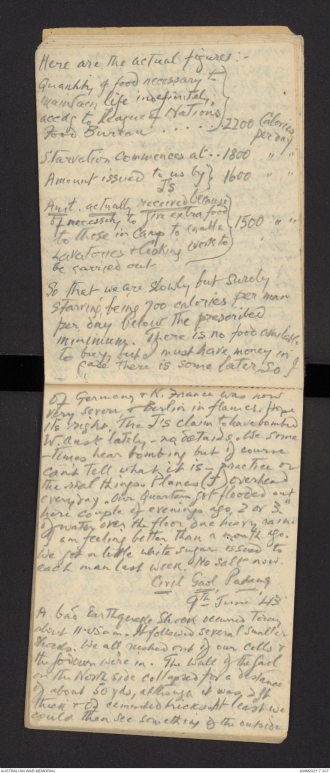 Here are the actual figures:-
Quantity of food necessary to
maintain life indefinitely,
accdg to League of Nations
Food Bureau . . . . . 2200 Calories
per day
Starvation commences at .. 1800 " "
Amount issued to us by
J's 1600 " "
Amt. actually received because
of necessity to give extra food
to those in Camp to enable
Lavatories & cooking work to
be carried out. 1500 " "
So that we are slowly but surely
starving being 700 calories per man
per day below the prescribed
minimum. There is no food available
to buy, but I must have money in
case there is some later. So I
of Germany & N. France was now
very severe & Berlin in flames. Hope
its right. The J's claim to have bombed
lately - no details. We some-
times hear bombing but of course
can't tell what it is - practice or
the real thing. Planes (J) overhead
everyday. Our quarters got flooded out
here couple of evenings ago, 2 or 3"
of water over the floor, one heavy rain.
I am feeling better than a month ago.
We got a little white sugar issued to
each man last week. No salt now.
Civil Gaol, Padang
9th June 43
A bad Earthquake Shock occurred today
about 11.45am. It followed several smaller
shocks. We all rushed out of our cells &
the for'dom were in. The wall of the Gaol
on the North side collapsed for a distance
of about 50 yds, although it was 2ft
thick & of cemented bricks. At least we
could then see something of the outside
AUSTRALIAN WAR MEMORIAL